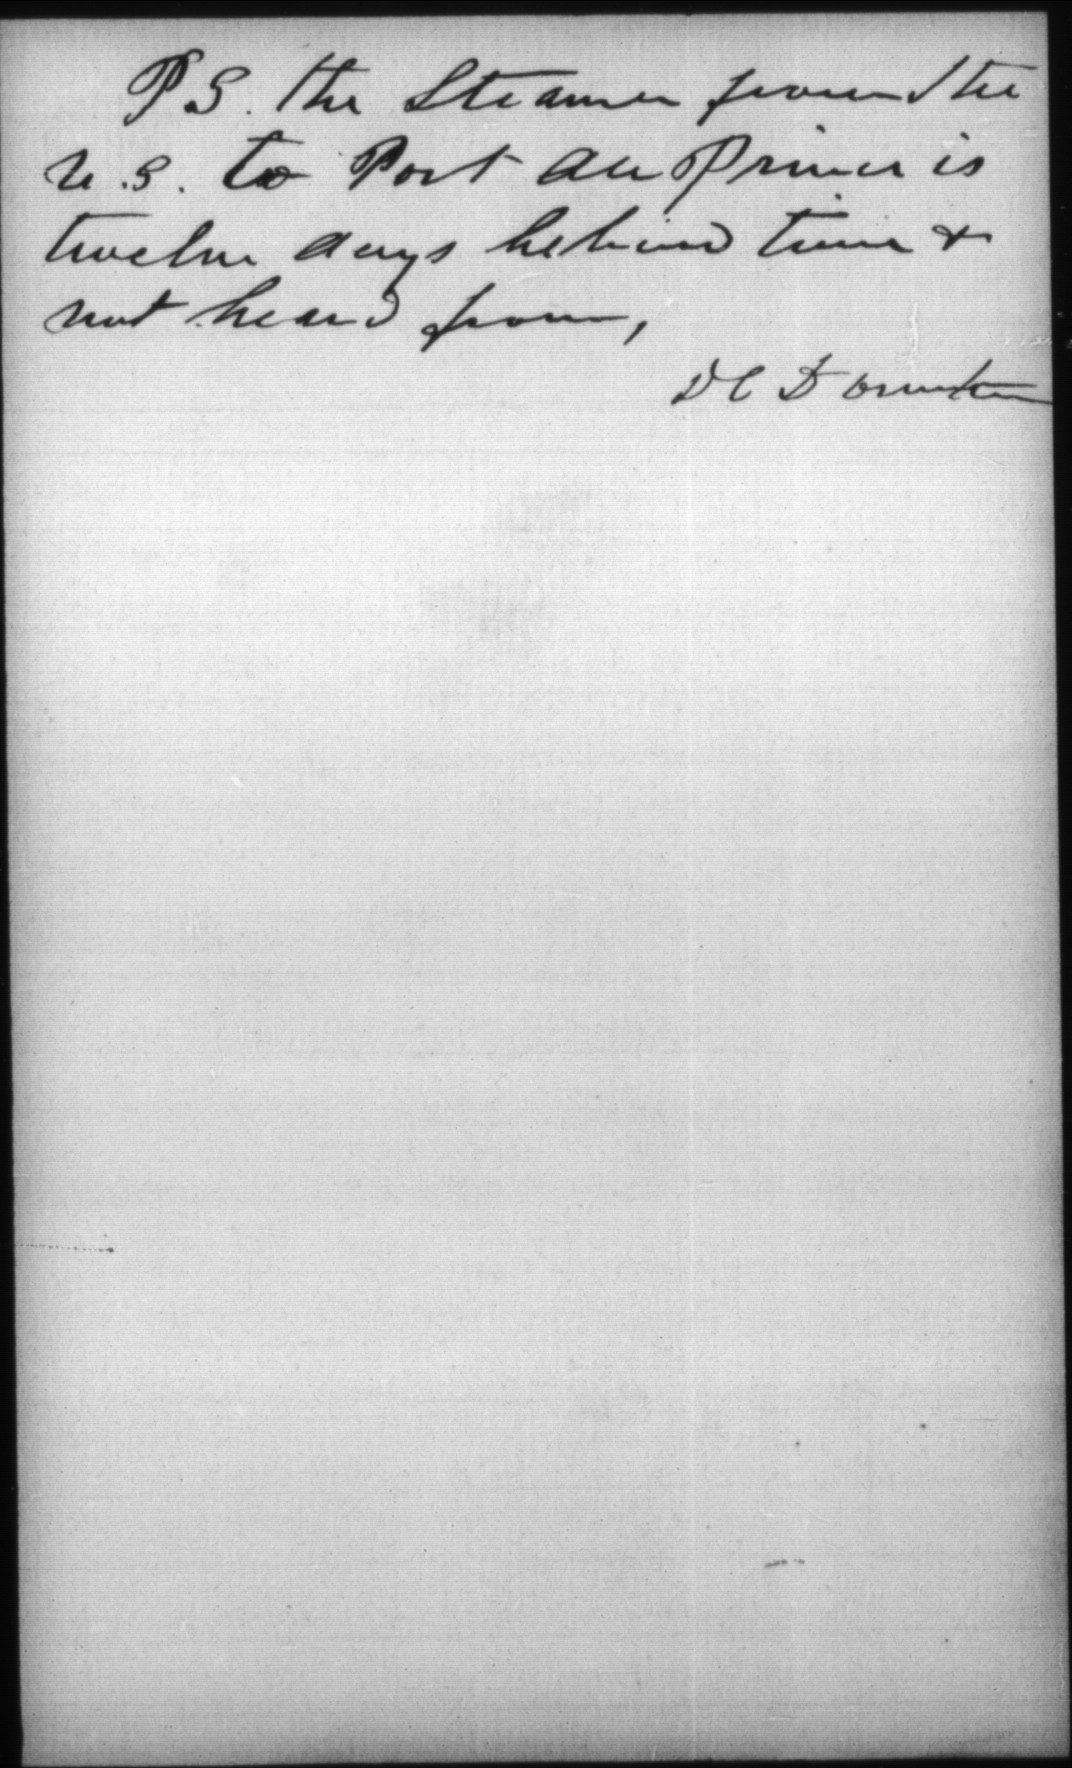 P S. The Steamer from the
U.S. to Port au Prince is
twelve days behind time &
not heard from,
D C